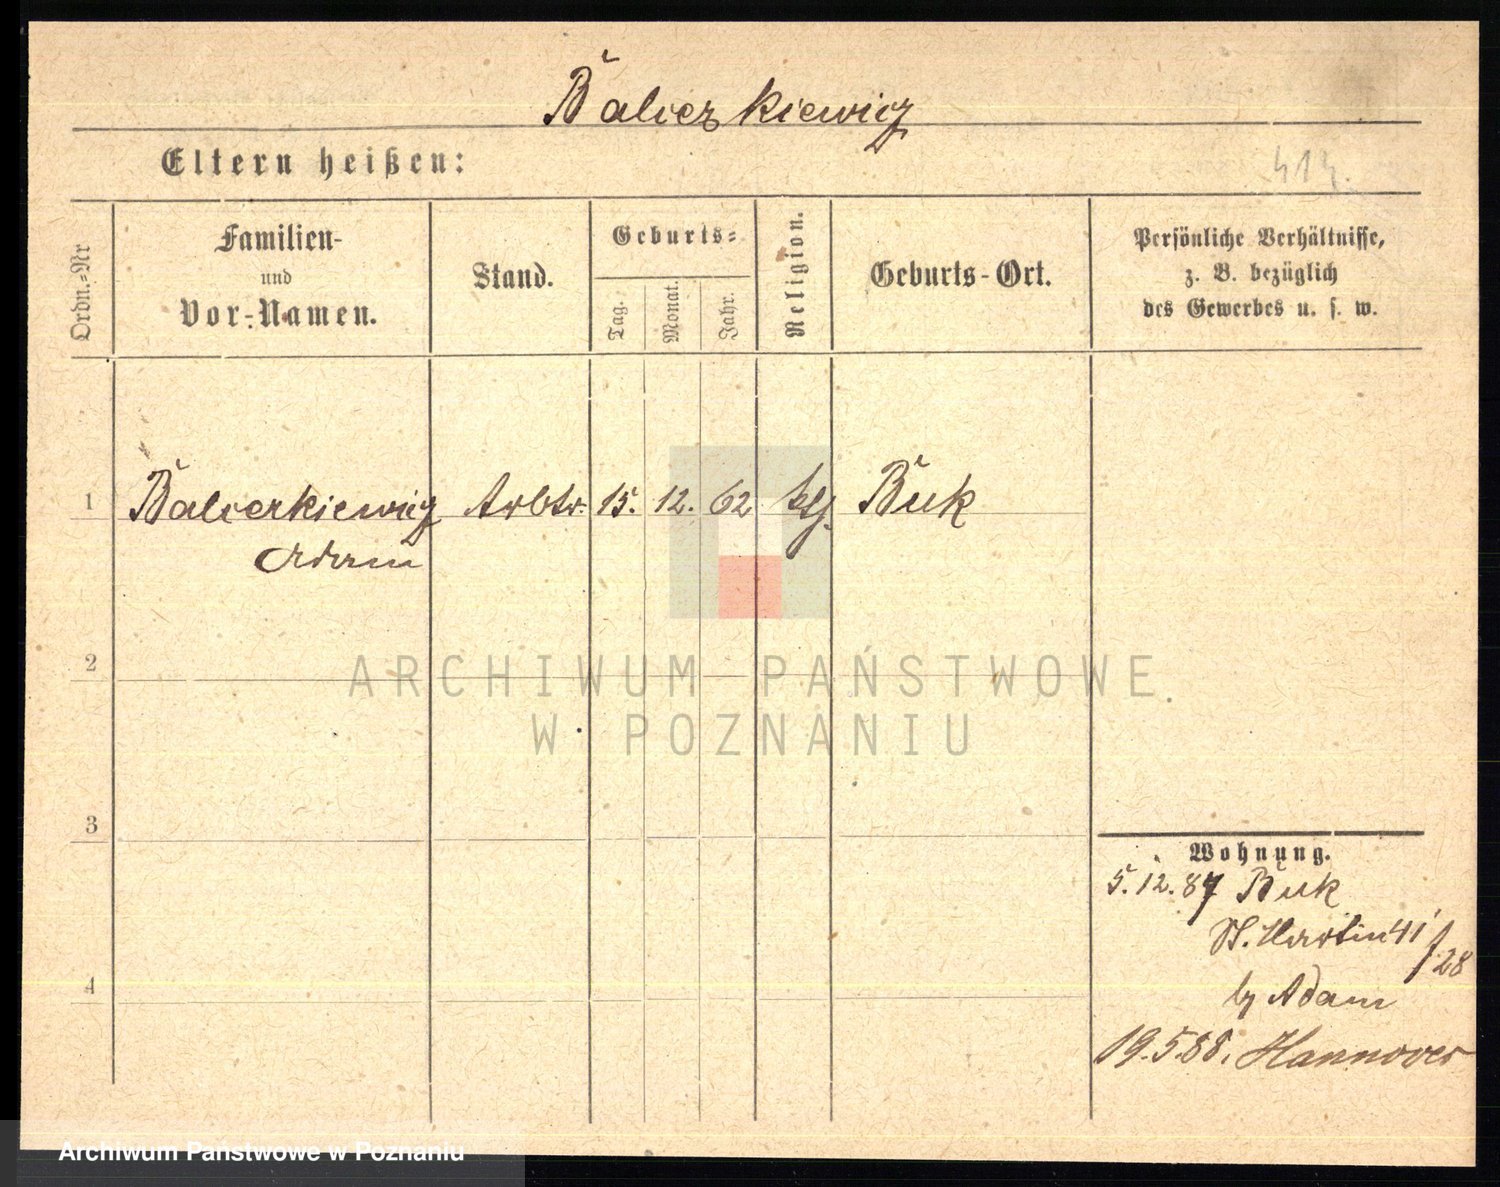 Balcerkiewicz
Eltern heißen:
Ordn.-Nr
Familien-
und
Vor-Namen.
Stand.
Geburts-
Tag.
Monat.
Jahr.
Religion.
Geburts-Ort.
Persönliche Verhältnisse,
z. B. bezüglich
des Gewerbes u. s. w.
1 Balcerkiewicz Arbtr. 15. 12. 62 Buk
Adam
2
ARCHIWUM PAŃSTWOWE
W POZNANIU
3
Wohnung.
5.12.87 Buk
St. Martin 41/28
4
by Adam
19.5.88. Hannover
Archiwum Państwowe w Poznaniu